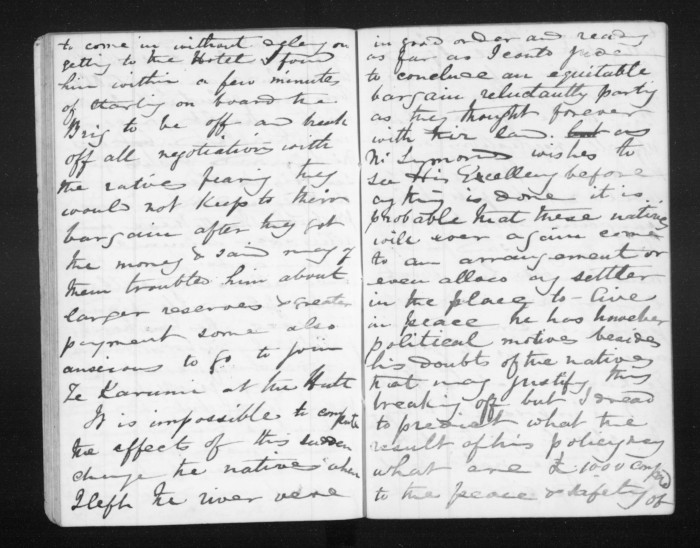 to come in without delay on
getting to the Hotel I found
him within a few minutes
of starting on board the
Brig to be off and break
off all negotiations with
the natives fearing they
would not keep to their
bargain after they got
the money & said many of
them troubled him about
larger reserves & greater
payment some also
anxious to go to join
Te Karumu at the Hutt
It is impossible to compute
the effects of this sudden
change the natives when
I left the river were
in good order and ready
as far as I could judge
to conclude an equitable
bargain reluctantly parting
as they thought forever
with their land. but as
Mr Symonds wishes to
see His Excellency before
anything is done it is
probable that these natives
will ever again come
to an arrangement or
even allow any settler
in the place to live
in peace he has however
political motives besides
his doubts of the natives
that may justify this
breaking off but I dread
to predict what the
result of his policy may
what are £1000 compd
to the peace & safety of